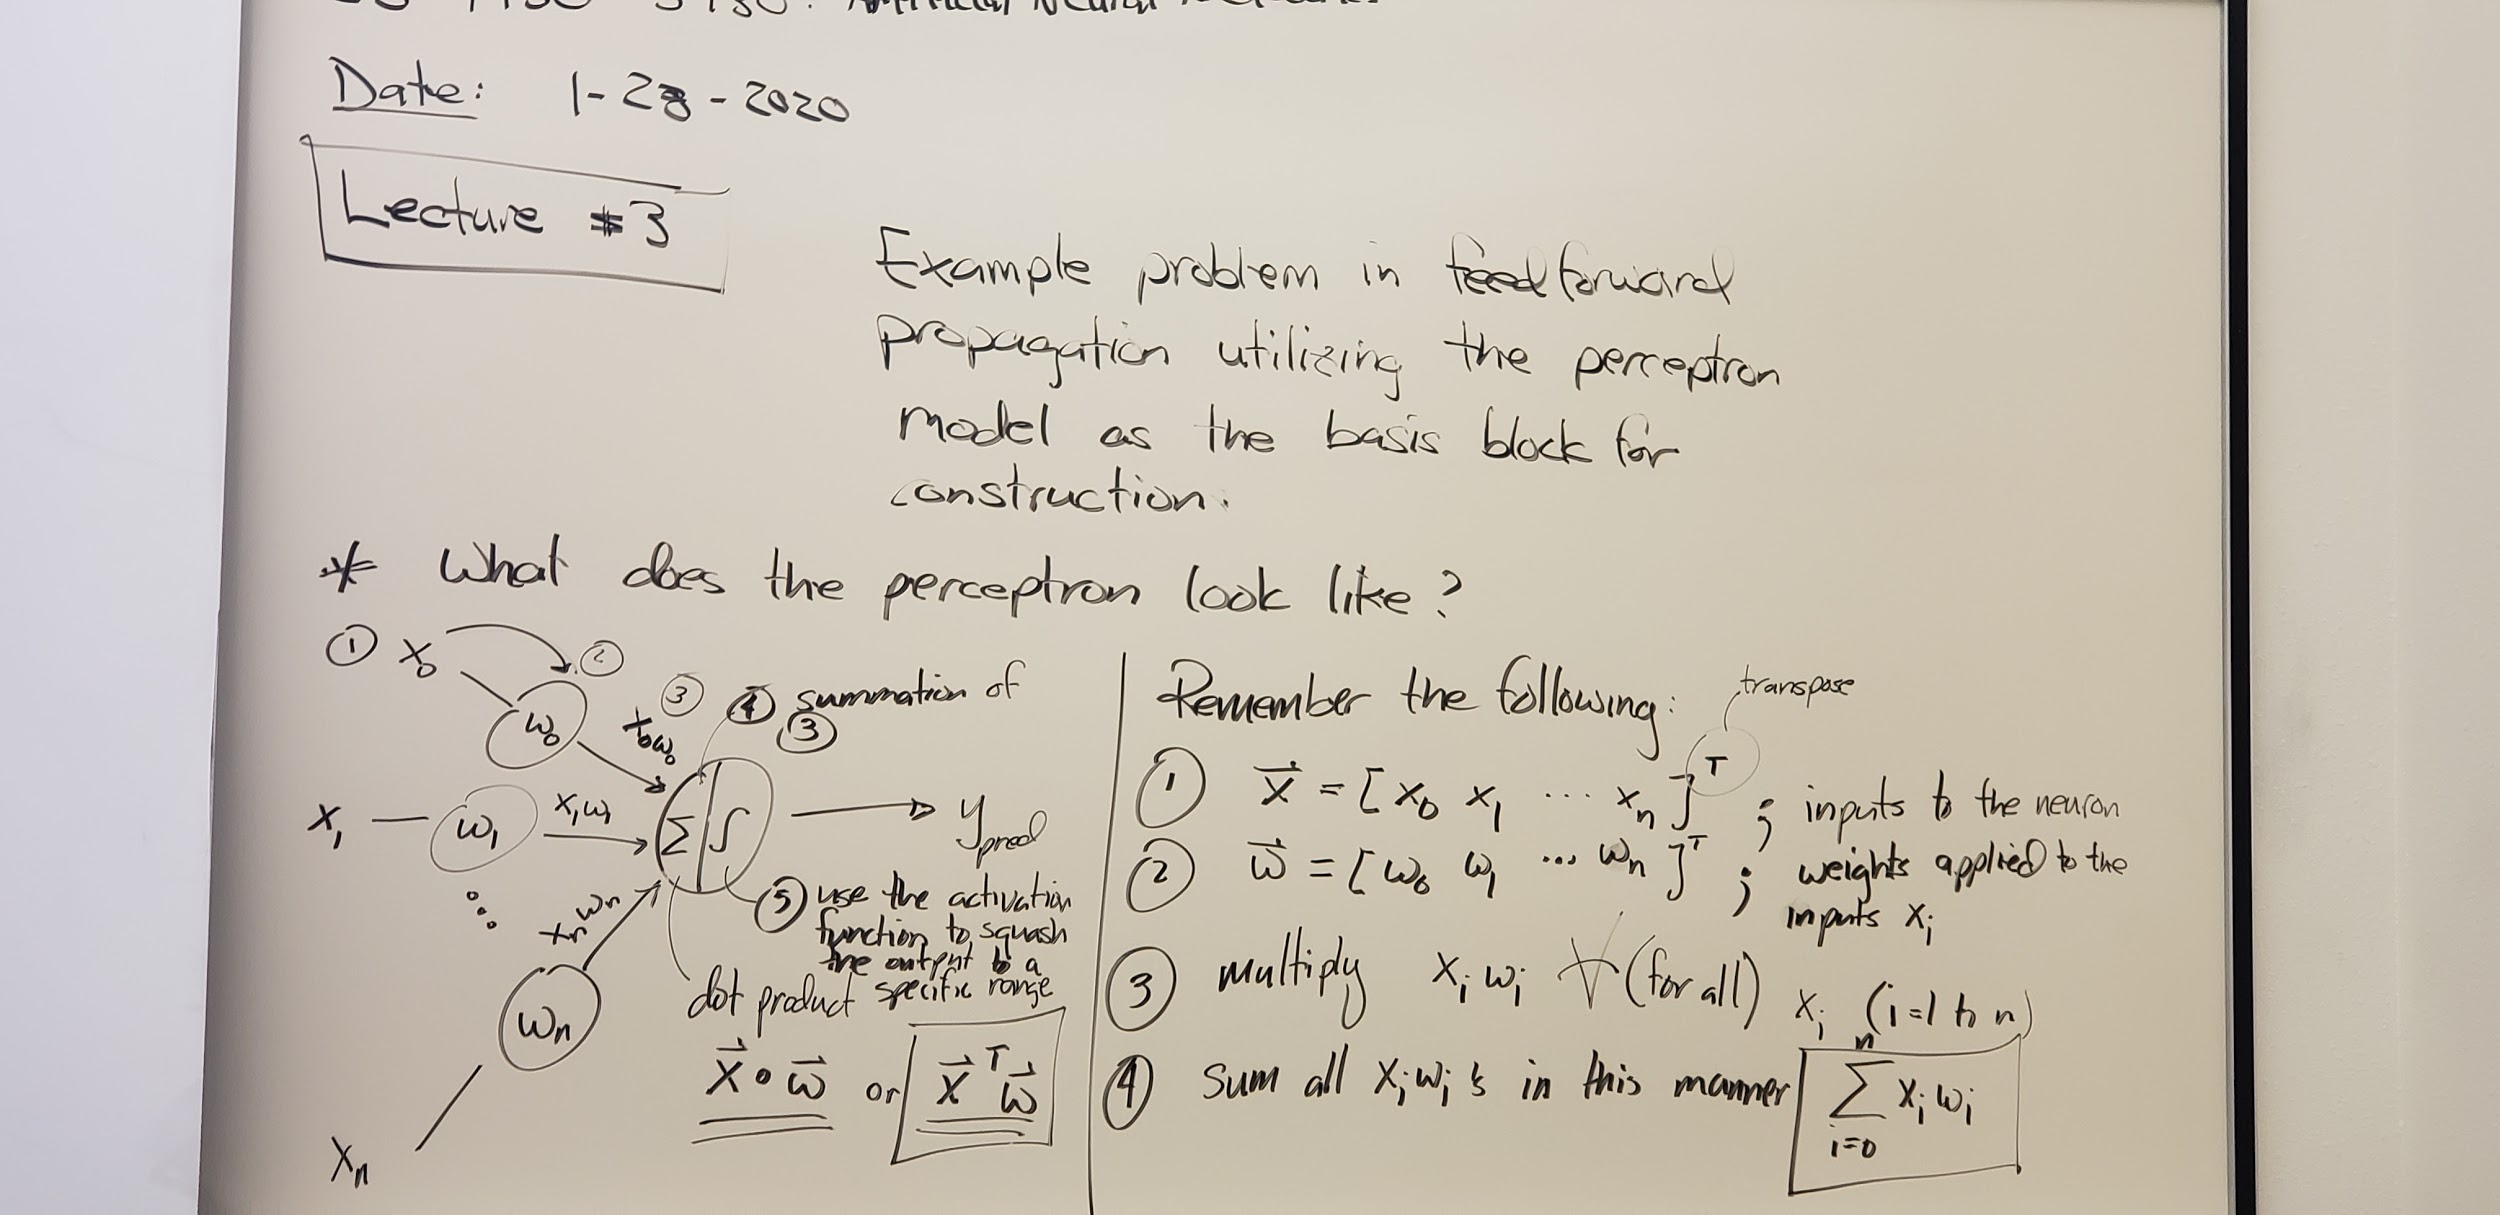 Artificial Neural
Date: 1-28-2020
Lecture #3
Example problem in feedforward
propagation utilizing the perceptron
model as the basis block for
construction.
* What does the perceptron look like?
① x₀ ②
w₀
x₀w₀ ③
④ summation of
③
x₁ w₁ x₁w₁ Σ ∫ y_pred
⋮
xₙwₙ
wₙ
xₙ
⑤ use the activation
function to squash
the output to a
specific range
dot product
x⃗ • w⃗ or x⃗ᵀw⃗
Remember the following:
transpose
① x⃗ = [x₀ x₁ ... xₙ]ᵀ ; inputs to the neuron
② w⃗ = [w₀ w₁ ... wₙ]ᵀ ; weights applied to the
inputs xᵢ
③ multiply xᵢwᵢ ∀ (for all) xᵢ (i=1 to n)
④ sum all xᵢwᵢ's in this manner n Σ i=0 xᵢwᵢ